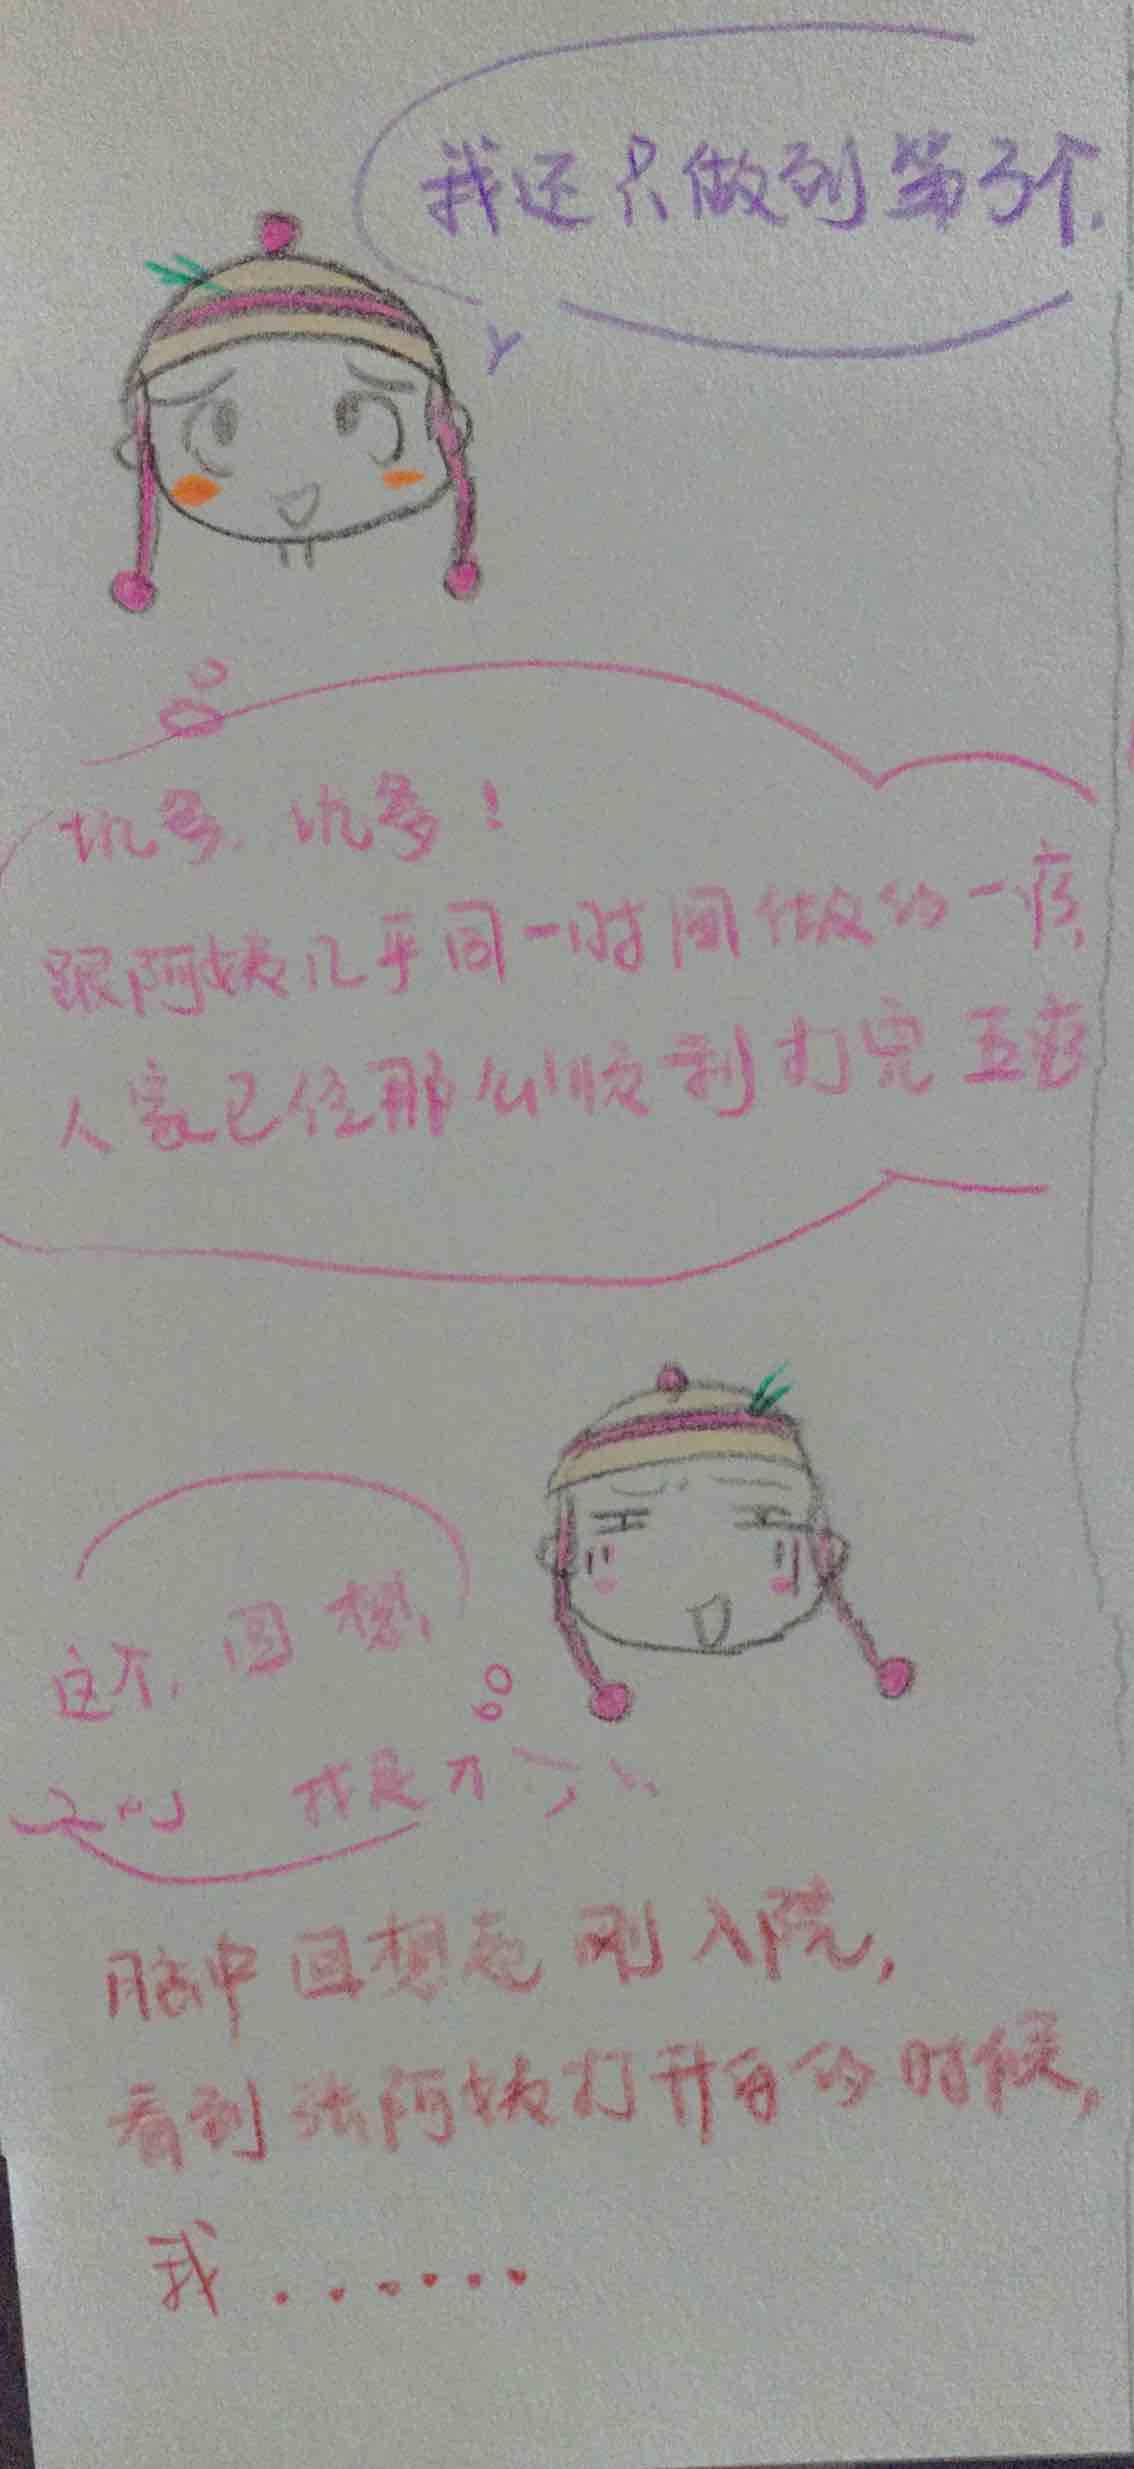 我还只做到第3个.
坑爹.坑爹!
跟阿姨几乎同一时间做的一疗,
人家已经那么顺利打完五疗
这个.回想,
我是不
脑中回想起刚入院,
看到张阿姨打升白的时候,
我.......